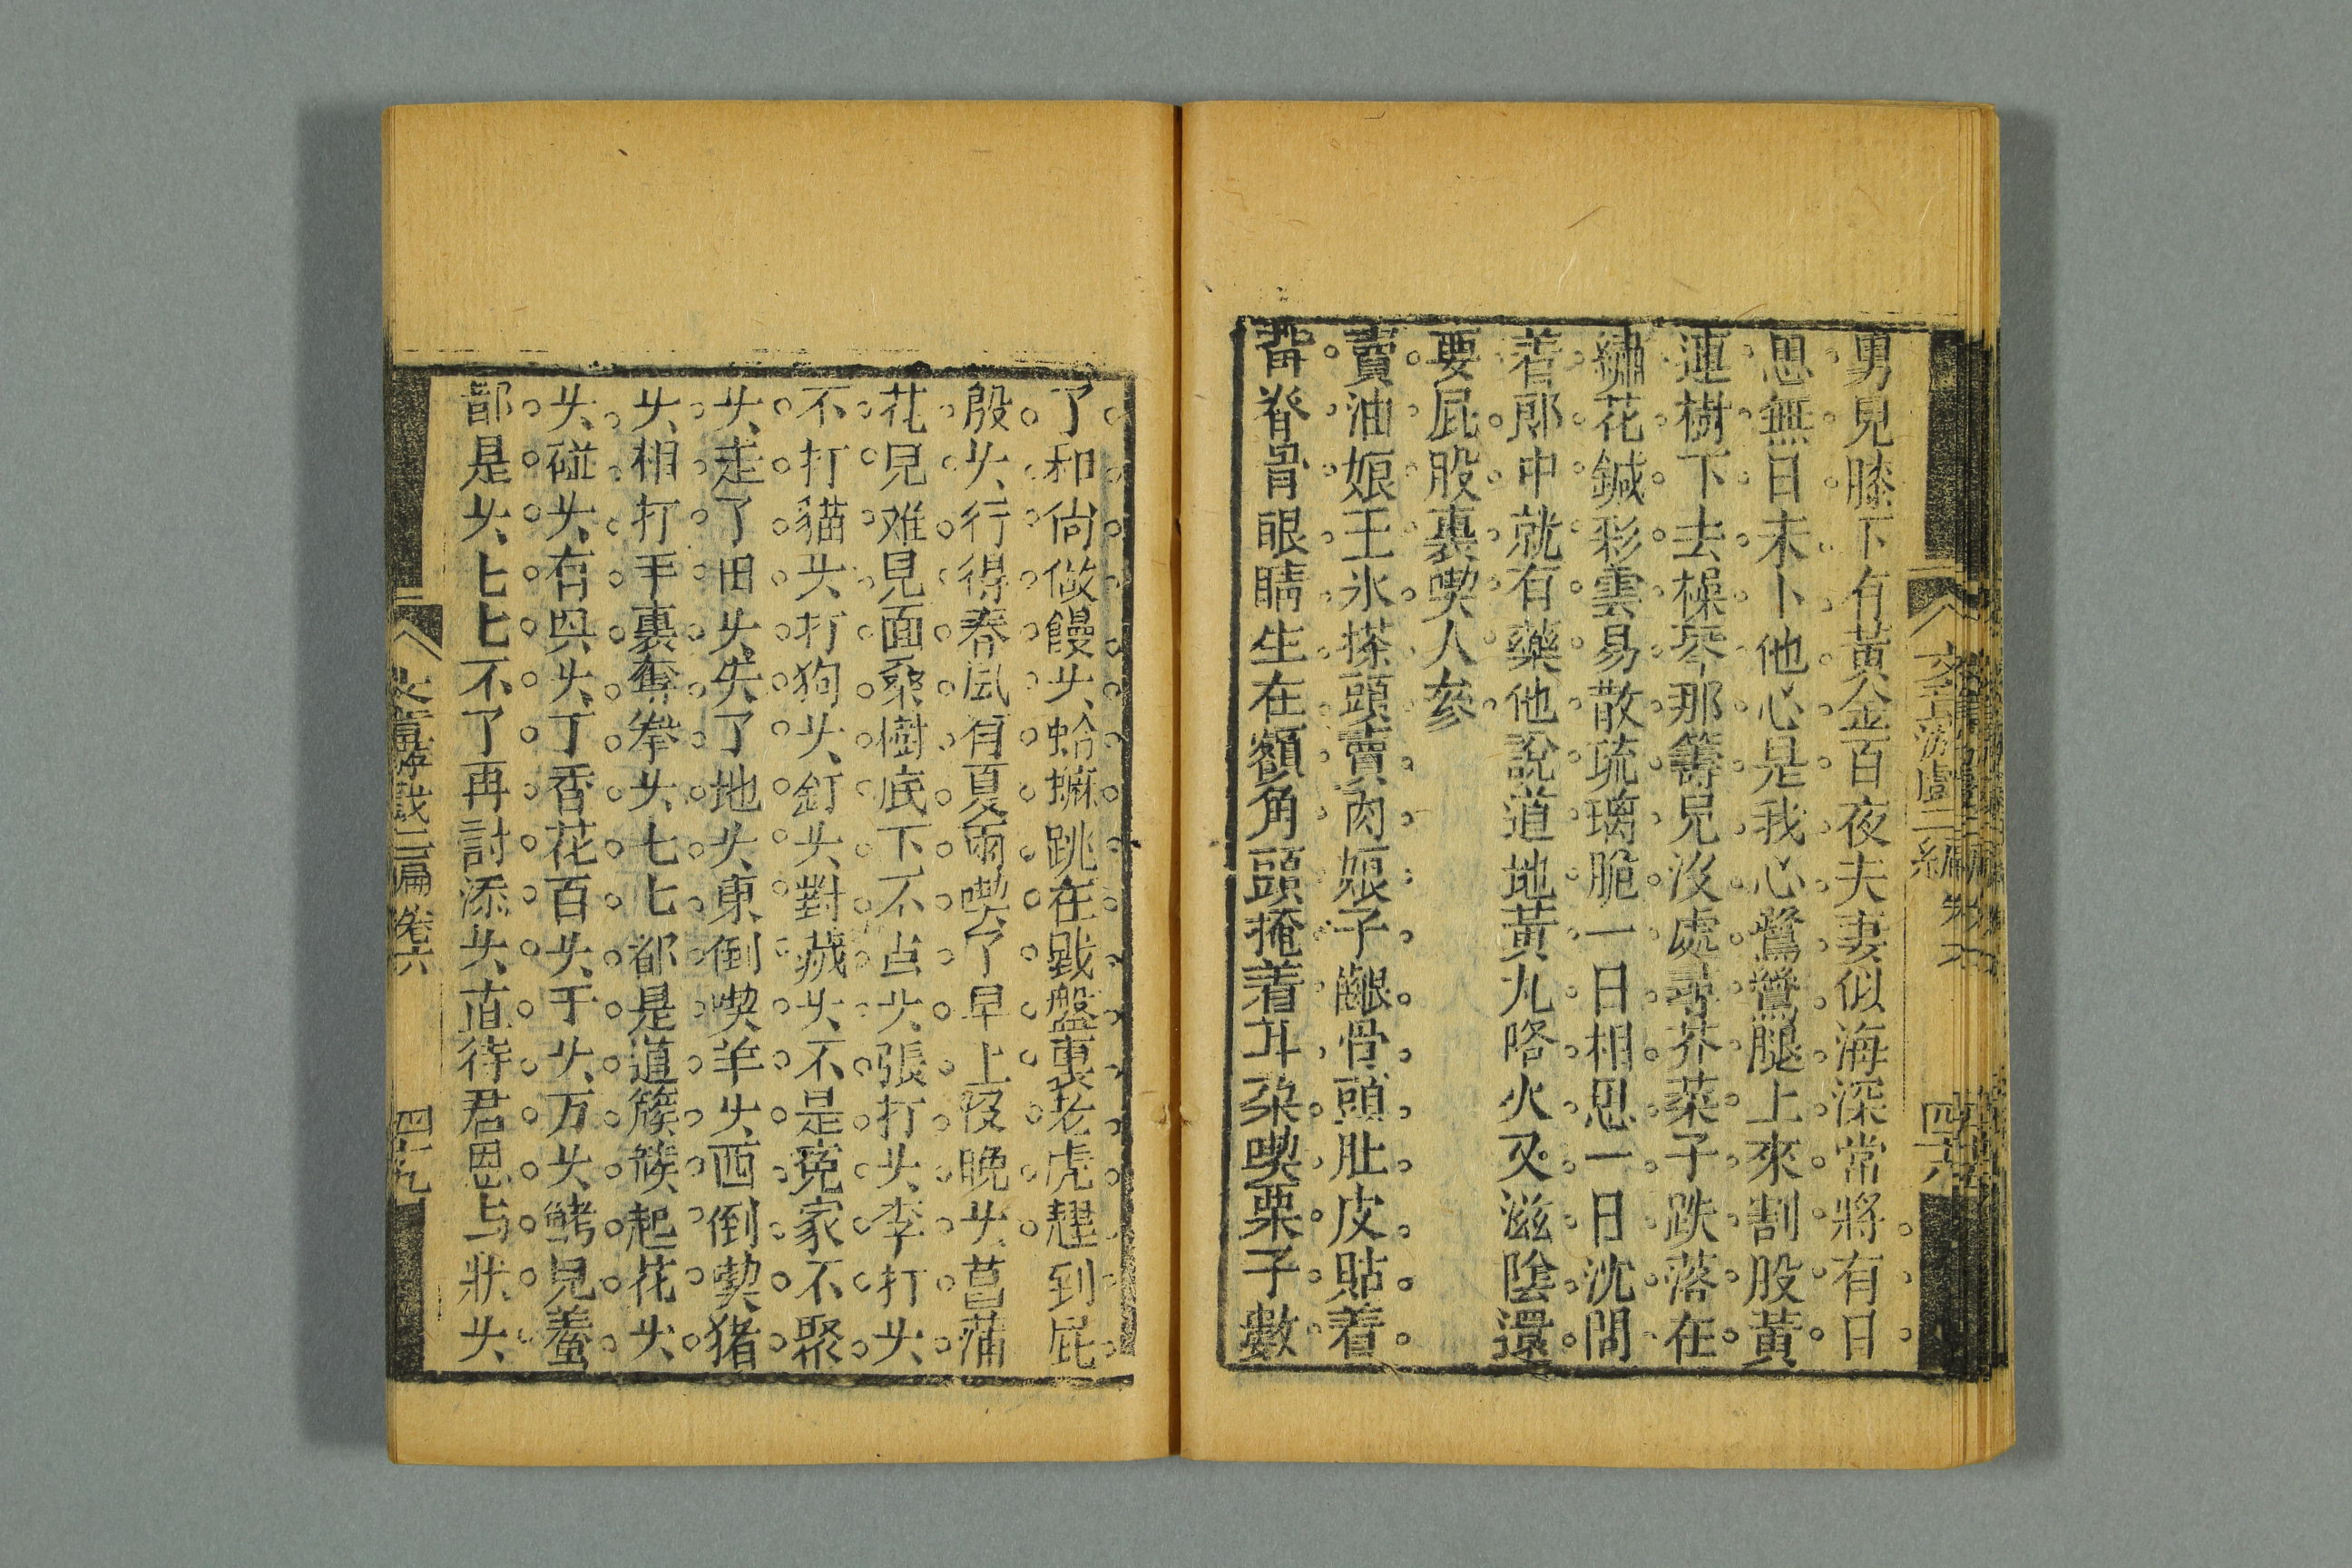 男兒膝下有黃金百夜夫妻似海深常將有日
思無日未卜他心是我心鷺鷥腿上來割股黃
連樹下去操琴那籌兒沒處尋芥菜子跌落在
繡花鍼彩雲易散琉璃脆一日相思一日沈問
着郎中就有藥他說道地黃九咯火又滋陰還
要屁股裏喫人參
賣油娘王氷搽頭賣肉娘子齦骨頭肚皮貼着
背脊骨眼睛生在額角頭掩着耳朶喫栗子數
了和尙做饅头蛤蟆跳在戥盤裏老虎趕到屁
股头行得春風有夏雨喫了早上沒晚头菖蒲
花兒难見面桑樹底下不点头張打头李打头
不打貓头打狗头釘头對鉄头不是寃家不聚
头走了田头失了地头東倒喫羊头西倒喫猪
头相打手裏奪拳头七七都是道簇簇起花头
头碰头有吳头丁香花百头千头万头鳑見鲞
都是头七七不了再討添头直待君恩与狀头
四十八
四十九